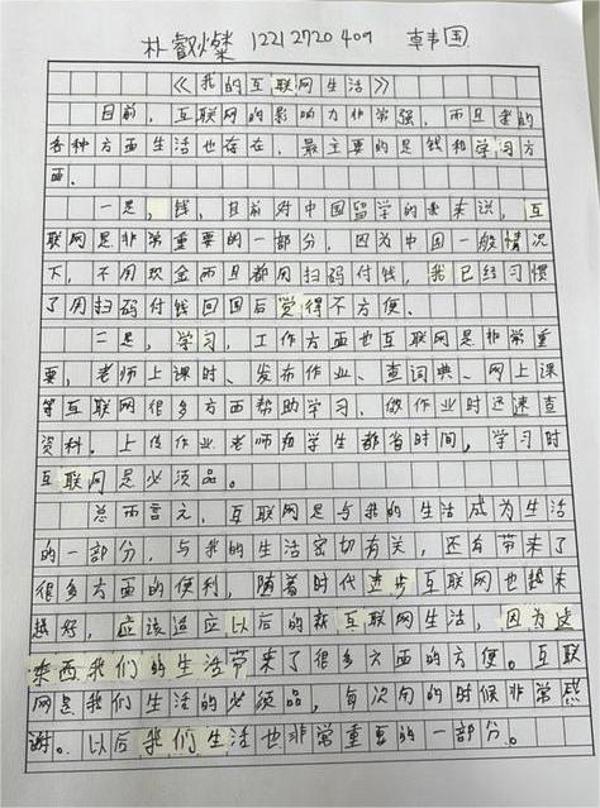 朴叡燦 12212720409 韩国
《我的互联网生活》
目前，互联网的影响力非常强，而且我的
各种方面生活也存在，最主要的是钱和学习方
面。
一是，钱，目前对中国留学的我来说，互
联网是非常重要的一部分，因为中国一般情况
下，不用现金而且都用扫码付钱，我已经习惯
了用扫码付钱回国后觉得不方便。
二是，学习，工作方面也互联网是非常重
要，老师上课时、发布作业、查词典、网上课
等互联网很多方面帮助学习，做作业时迅速查
资料，上传作业老师和学生都省时间，学习时
互联网是必须品。
总而言之，互联网是与我的生活成为生活
的一部分，与我的生活密切有关，还有带来了
很多方面的便利，随着时代进步互联网也越来
越好，应该适应以后的新互联网生活，因为这
东西我们的生活带来了很多方面的方便。互联
网是我们生活的必须品，每次用的时候非常感
谢。以后我们生活也非常重要的一部分。